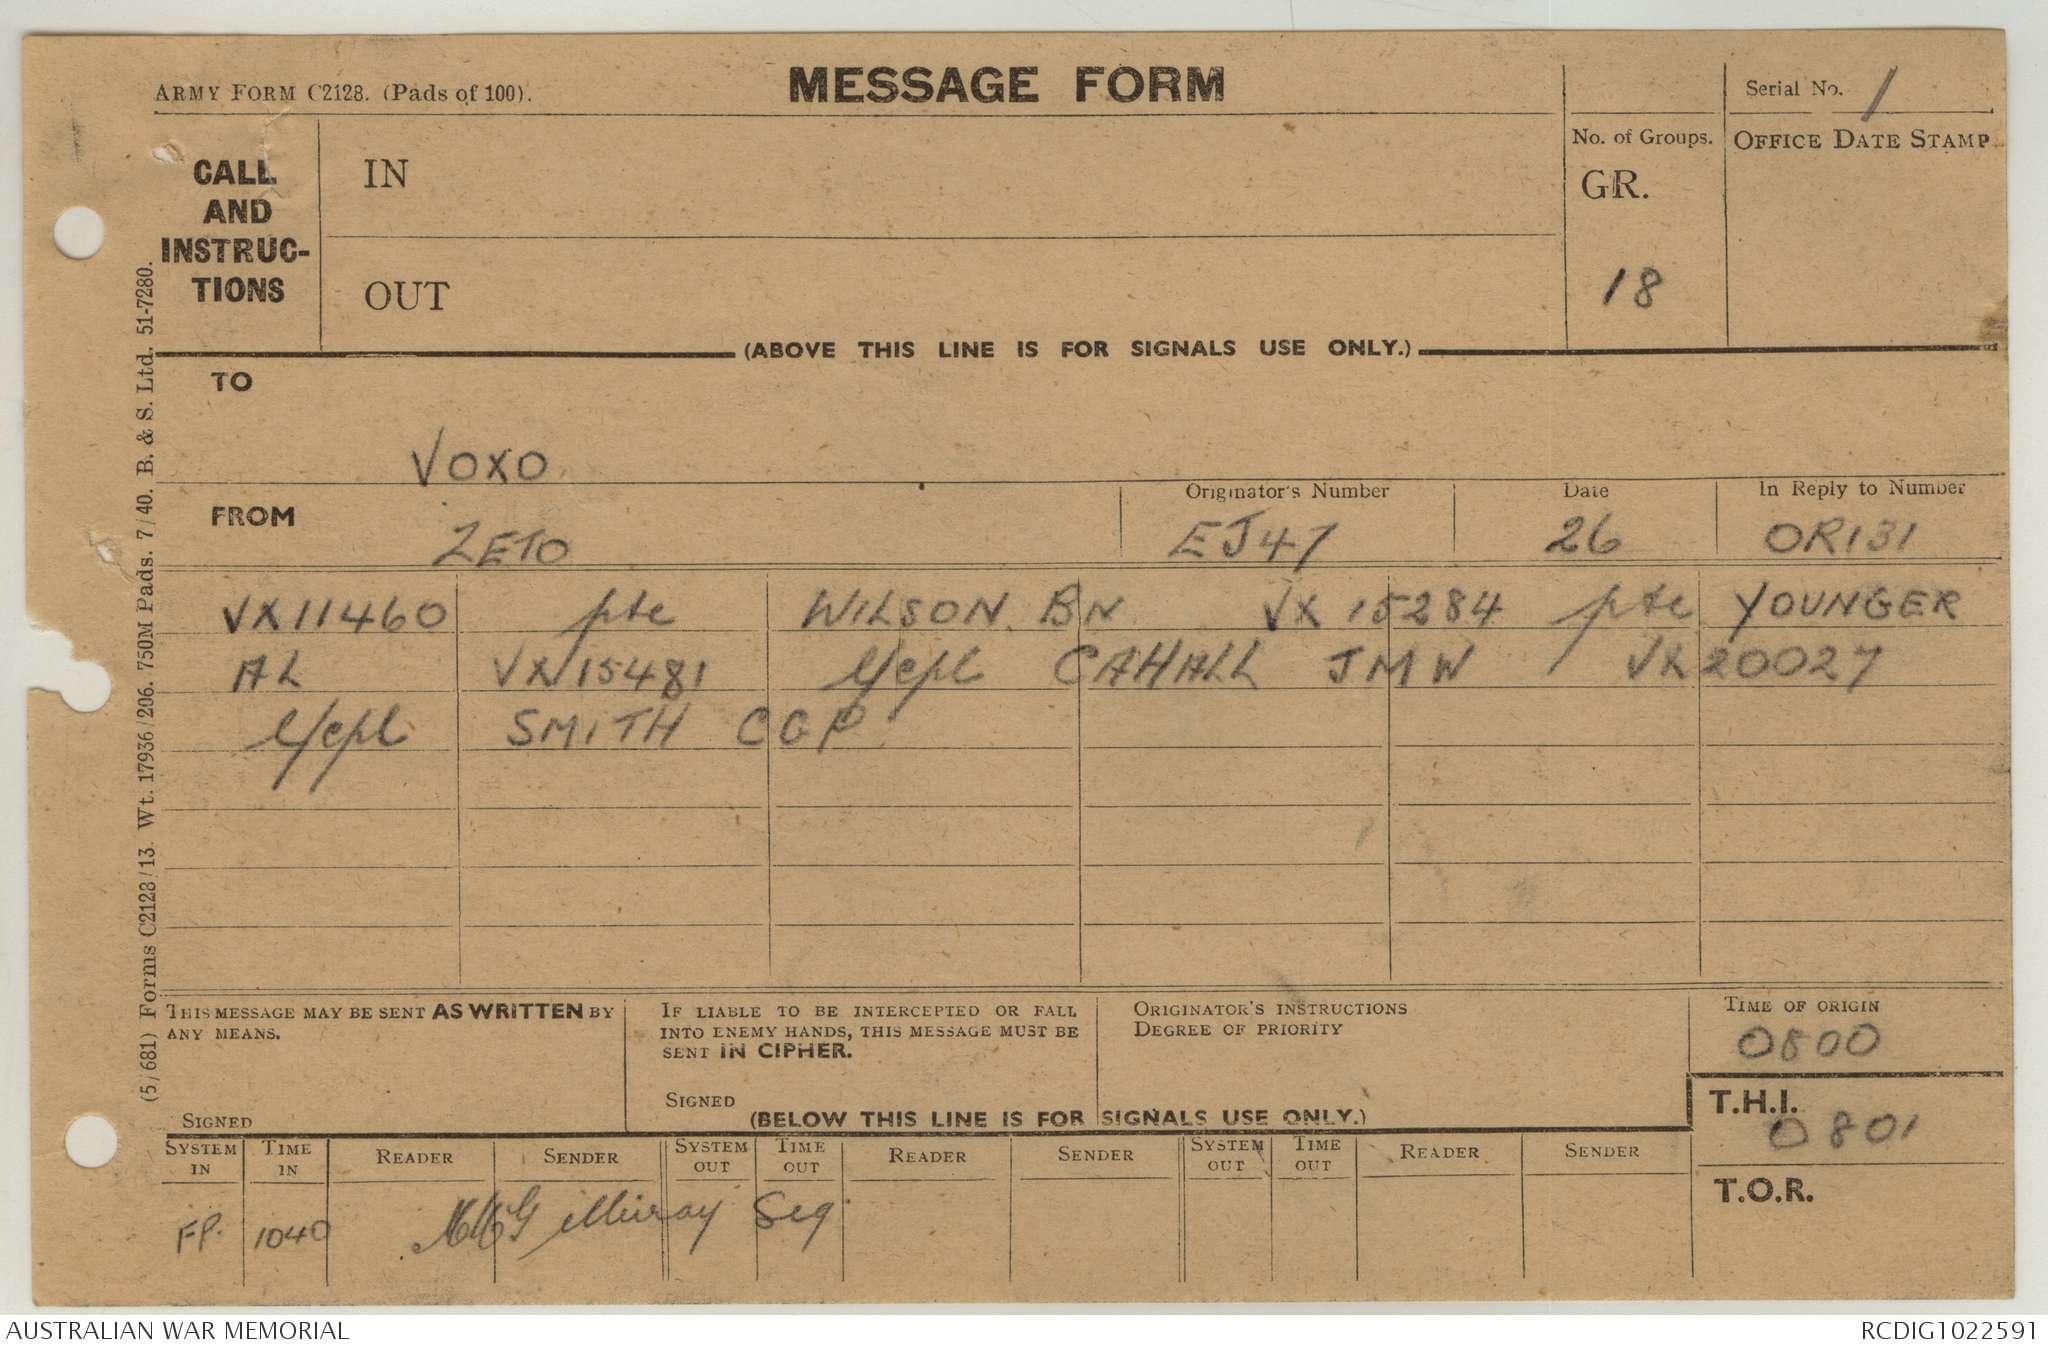 ARMY FORM C2128. (Pads of 100).
MESSAGE FORM
Serial No. 1
CALL AND INSTRUC-TIONS
IN
OUT
No. of Groups.
GR.
18
OFFICE DATE STAMP
(ABOVE THIS LINE IS FOR SIGNALS USE ONLY.)
TO
VOXO
FROM
ZETO
Originator's Number
EJ47
Date
26
In Reply to Number
OR131
VX11460 pte WILSON. BN VX 15284 pte YOUNGER
AL VX15481 L/cpl CAHALL JMW VX20027
L/cpl SMITH CGP
(5/681) Forms C2128/13. Wt. 17936/206. 750M Pads. 7/40. B. & S. Ltd. 51-7280.
THIS MESSAGE MAY BE SENT AS WRITTEN BY
ANY MEANS.
SIGNED
IF LIABLE TO BE INTERCEPTED OR FALL
INTO ENEMY HANDS, THIS MESSAGE MUST BE
SENT IN CIPHER.
SIGNED
ORIGINATOR'S INSTRUCTIONS
DEGREE OF PRIORITY
TIME OF ORIGIN
0800
T.H.I.
0801
T.O.R.
(BELOW THIS LINE IS FOR SIGNALS USE ONLY.)
SYSTEM IN TIME IN READER SENDER SYSTEM OUT TIME OUT READER SENDER SYSTEM OUT TIME OUT READER SENDER
FP. 1040 Murray Sig
AUSTRALIAN WAR MEMORIAL
RCDIG1022591